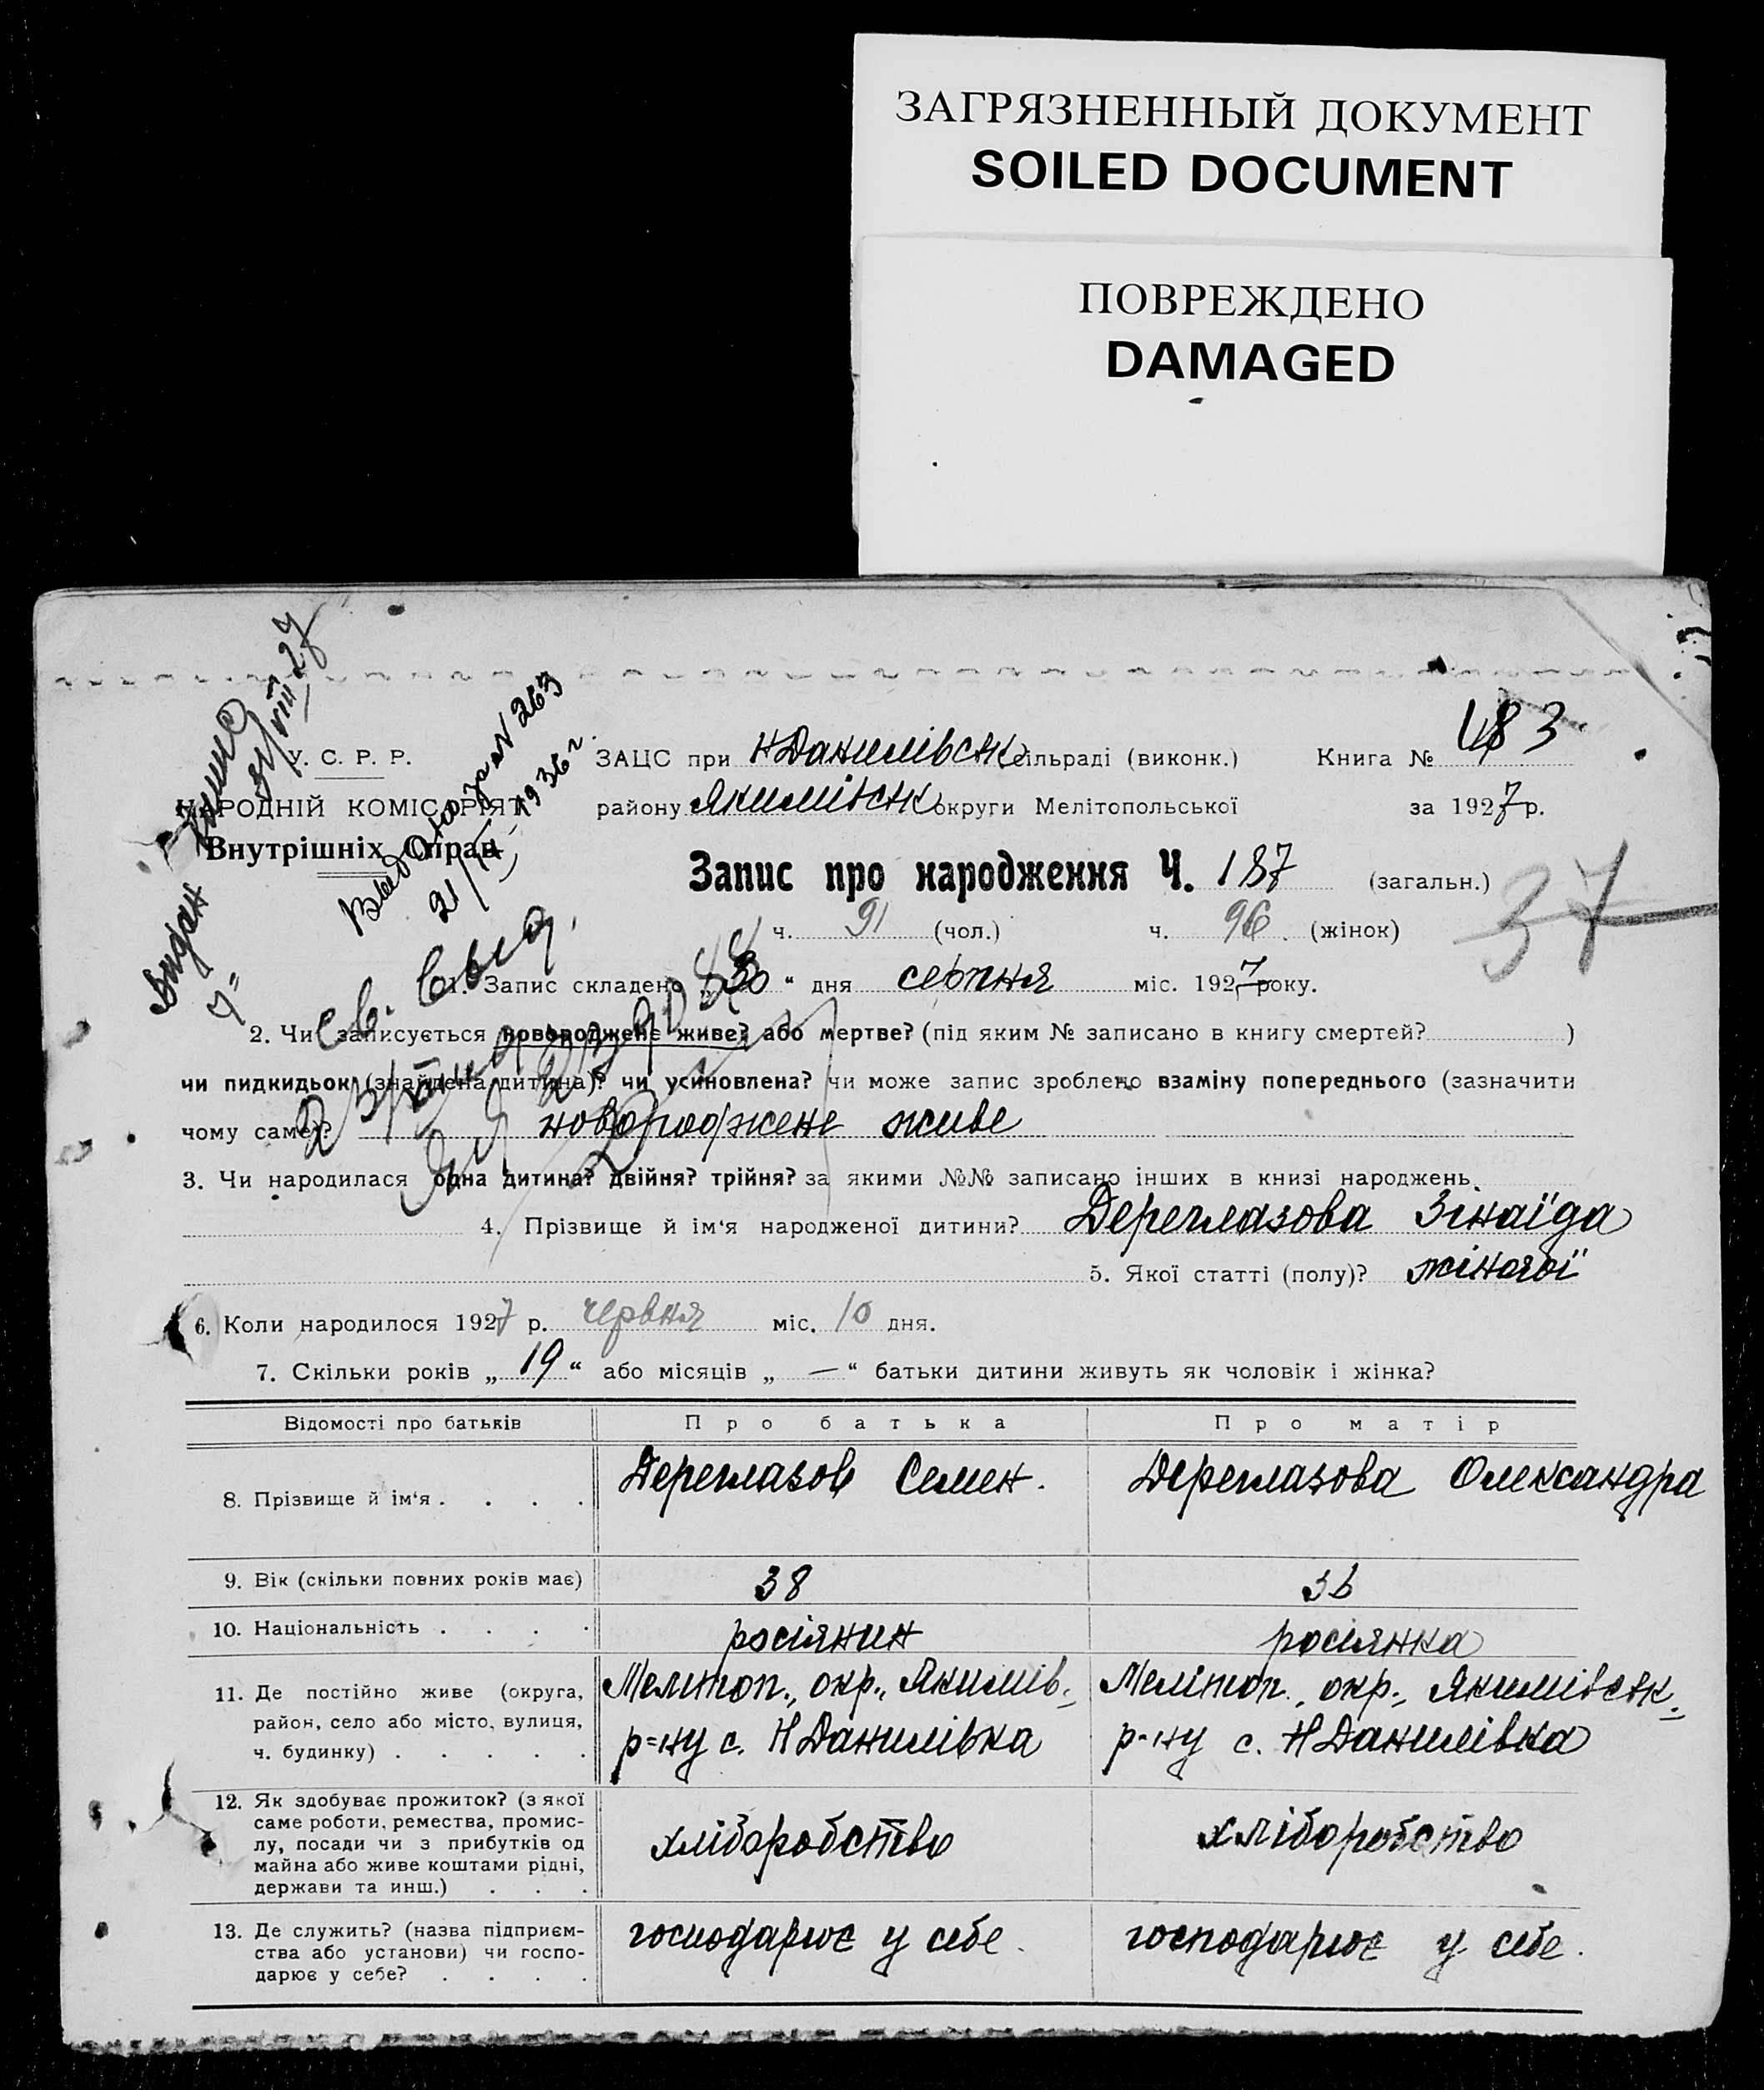 ЗАГРЯЗНЕННЫЙ ДОКУМЕНТ
SOILED DOCUMENT
ПОВРЕЖДЕНО
DAMAGED
У. С. Р. Р.
НАРОДНІЙ КОМІСАРІЯТ
Внутрішніх Справ
Видан
31/VIII 27
Выдано за № 269
21/IV 1936 г.
ЗАЦС при НДанилівськ сільраді (виконк.) Книга № 183
району Якимівськ округи Мелітопольської за 1927 р.
Запис про народження Ч. 187 (загальн.)
37
ч. 91 (чол.) ч. 96 (жінок)
1. Запис складено „30“ дня серпня міс. 1927 року.
2. Чи записується новороджене живе? або мертве? (під яким № записано в книгу смертей? )
чи пидкидьок (знайдена дитина)? чи усиновлена? чи може запис зроблено взаміну попереднього (зазначити
чому саме)? новороджене живе
3. Чи народилася одна дитина? двійня? трійня? за якими №№ записано інших в книзі народжень.
4. Прізвище й ім‘я народженої дитини? Дереглазова Зінаїда
5. Якої статті (полу)? жіночої
6. Коли народилося 1927 р. червня міс. 10 дня.
7. Скільки років „19“ або місяців „—“ батьки дитини живуть як чоловік і жінка?
Відомості про батьків Про батька Про матір
8. Прізвище й ім‘я . . . . Дереглазов Семен. Дереглазова Олександра
9. Вік (скільки повних років має) 38 36
10. Національність . . . . росіянин росіянка
11. Де постійно живе (округа, Меліт​оп., окр., Якимів. Мелітоп., окр., Якимівськ.
район, село або місто, вулиця, р-ну с. НДанилівка р-ну с. НДанилівка
ч. будинку) . . . . .
12. Як здобуває прожиток? (з якої
саме роботи, ремества, промис-
лу, посади чи з прибутків од хліборобство хліборобство
майна або живе коштами рідні,
держави та инш.) . . .
13. Де служить? (назва підприєм- господарює у себе. господарює у себе.
ства або установи) чи госпо-
дарює у себе? . . . .